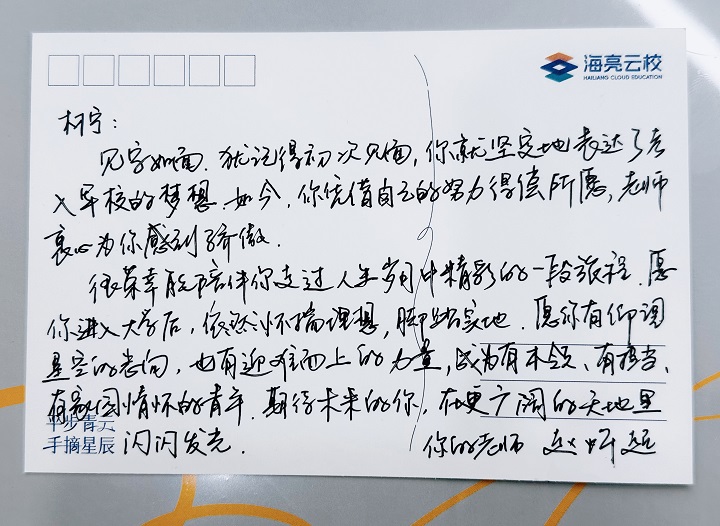 海亮云校
HAILIANG CLOUD EDUCATION
宁:
见字如面.犹记得初次见面,你就坚定地表达了考
入军校的梦想.如今,你凭借自己的努力得偿所愿,老师
衷心为你感到骄傲.
很荣幸能陪伴你走过人生岁月中精彩的一段旅程.愿
你进入大学后,依然怀揣理想,脚踏实地.愿你有仰望
星空的志向,也有迎难而上的力量,成为有本领、有担当、
有家国情怀的青年.期待未来的你,在更广阔的天地里
平步青云
手摘星辰
闪闪发光.
你的老师 赵